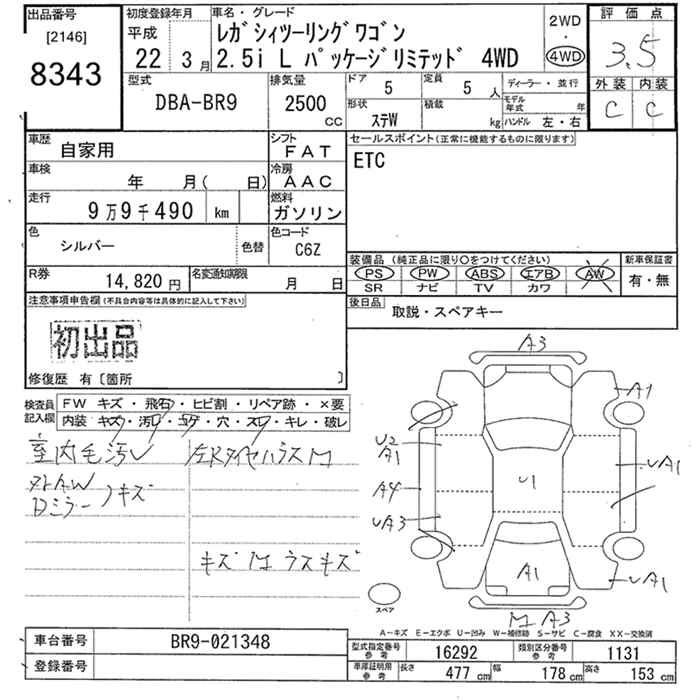 出品番号
[2146]
8343
初度登録年月
平成
22 3月
車名・グレード
レガシィツーリングワゴン
2.5i L パッケージリミテッド 4WD
2WD
・
4WD
評価点
3.5
外装 内装
C C
型式
DBA-BR9
排気量
2500
cc
ドア 5
定員 5 人
形状 ステW
積載 kg
ディーラー・並行
モデル年式 年
ハンドル 左・右
車歴 自家用
シフト FAT
車検 年 月( 日)
冷房 AAC
走行 9万9千490 km
燃料 ガソリン
色 シルバー 色替
色コード C6Z
R券 14,820円
名変通知期限 月 日
セールスポイント(正常に機能するものに限ります)
ETC
装備品(純正品に限り○をつけてください)
PS PW ABS エアB AW
SR ナビ TV カワ
新車保証書
有・無
後日品
取説・スペアキー
注意事項申告欄(不具合内容等は具体的に記入して下さい)
初出品
修復歴 有〔箇所 〕
検査員記入欄
FW キズ・飛石・ヒビ割・リペア跡・×要
内装 キズ・汚レ・コゲ・穴・スレ・キレ・破レ
室内毛汚レ
左Rタイヤハウス M
外AW
Dミラー キズ
キズ M ラスキズ
A3
A1
U2
A1
A4
UA3
U1
UA1
UA1
A1
M A3
スペア
A－キズ E－エクボ U－凹み W－補修跡 S－サビ C－腐食 XX－交換済
車台番号 BR9-021348
登録番号
型式指定番号 参考 16292
類別区分番号 参考 1131
車庫証明用 参考 長さ 477 cm 幅 178 cm 高さ 153 cm